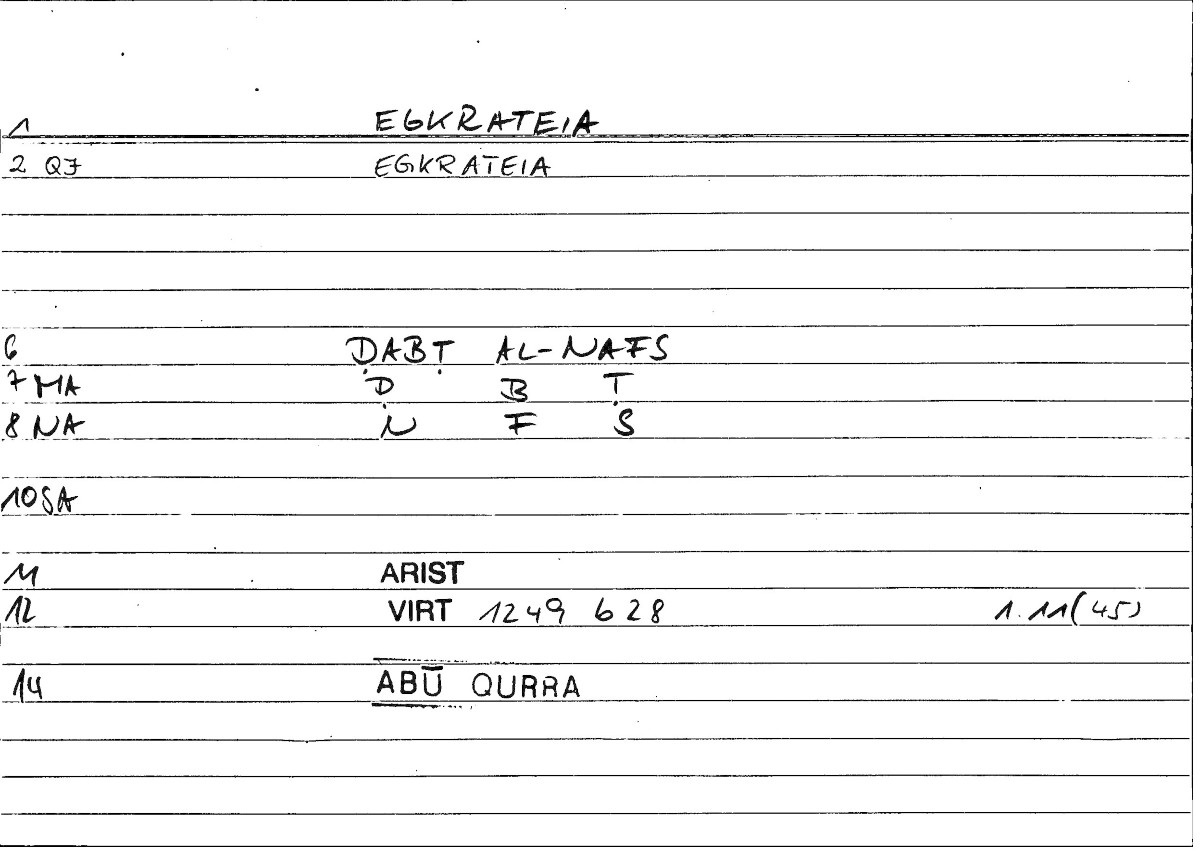 1 EGKRATEIA
2 QJ EGKRATEIA
6 ḌABṬ AL-NAFS
7 MA Ḍ B Ṭ
8 NA N F S
10 SA
11 ARIST
12 VIRT 1249 b 28 1.11(45)
14 ABŪ QURRA